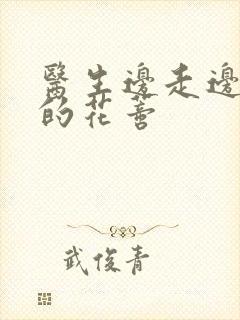 醫生邊走邊
的花蕾
武俊青